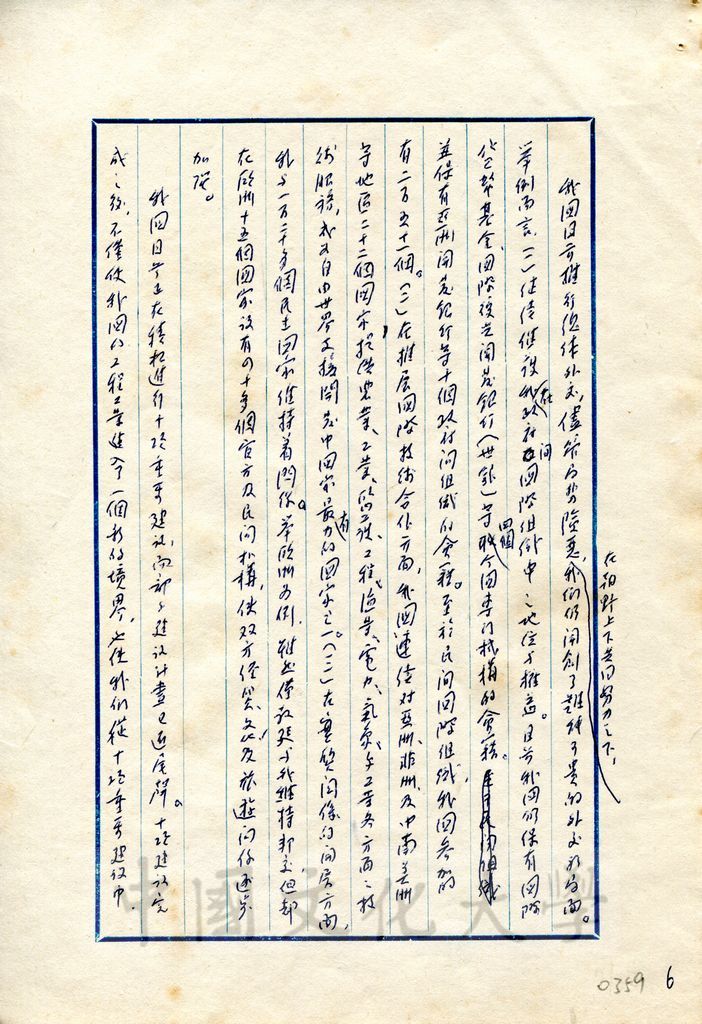 我國目前推行總體外交，儘管局勢險惡，我們仍開創了難能可貴的外交新局面。
在朝野上下共同努力之下，
舉例而言：(一)繼續維護我政府在國際組織中之地位與權益。目前我國仍保有國際
間
貨幣基金、國際復興開發銀行(世銀)等四個聯合國專門機構的會籍。
並保有亞洲開發銀行等十個政府間組織的會籍。至於民間國際組織，我國參加的
有二百五十一個。(二)在推展國際技術合作方面，我國連續對亞洲、非洲及中南美洲
等地區二十二個國家提供農業、工業、醫護、工程、漁業、電力、氣象、手工業等各方面之技
術服務，成為自由世界支援開發中國家最有力的國家之一。(三)在實質關係的開展方面，
我與一百二十多個民主國家維持着關係。舉歐洲為例，雖然僅教廷與我維持邦交，但卻
在歐洲十五個國家設有四十多個官方及民間機構，使雙方經貿、文化及旅遊關係逐步
加強。
我國目前正在積極進行十項重要建設，而部份建設計畫已近尾聲。十項建設完
成之後，不僅使我國的工程工業進入一個新的境界，也使我們從十項重要建設中，
中國文化大學
0359 6